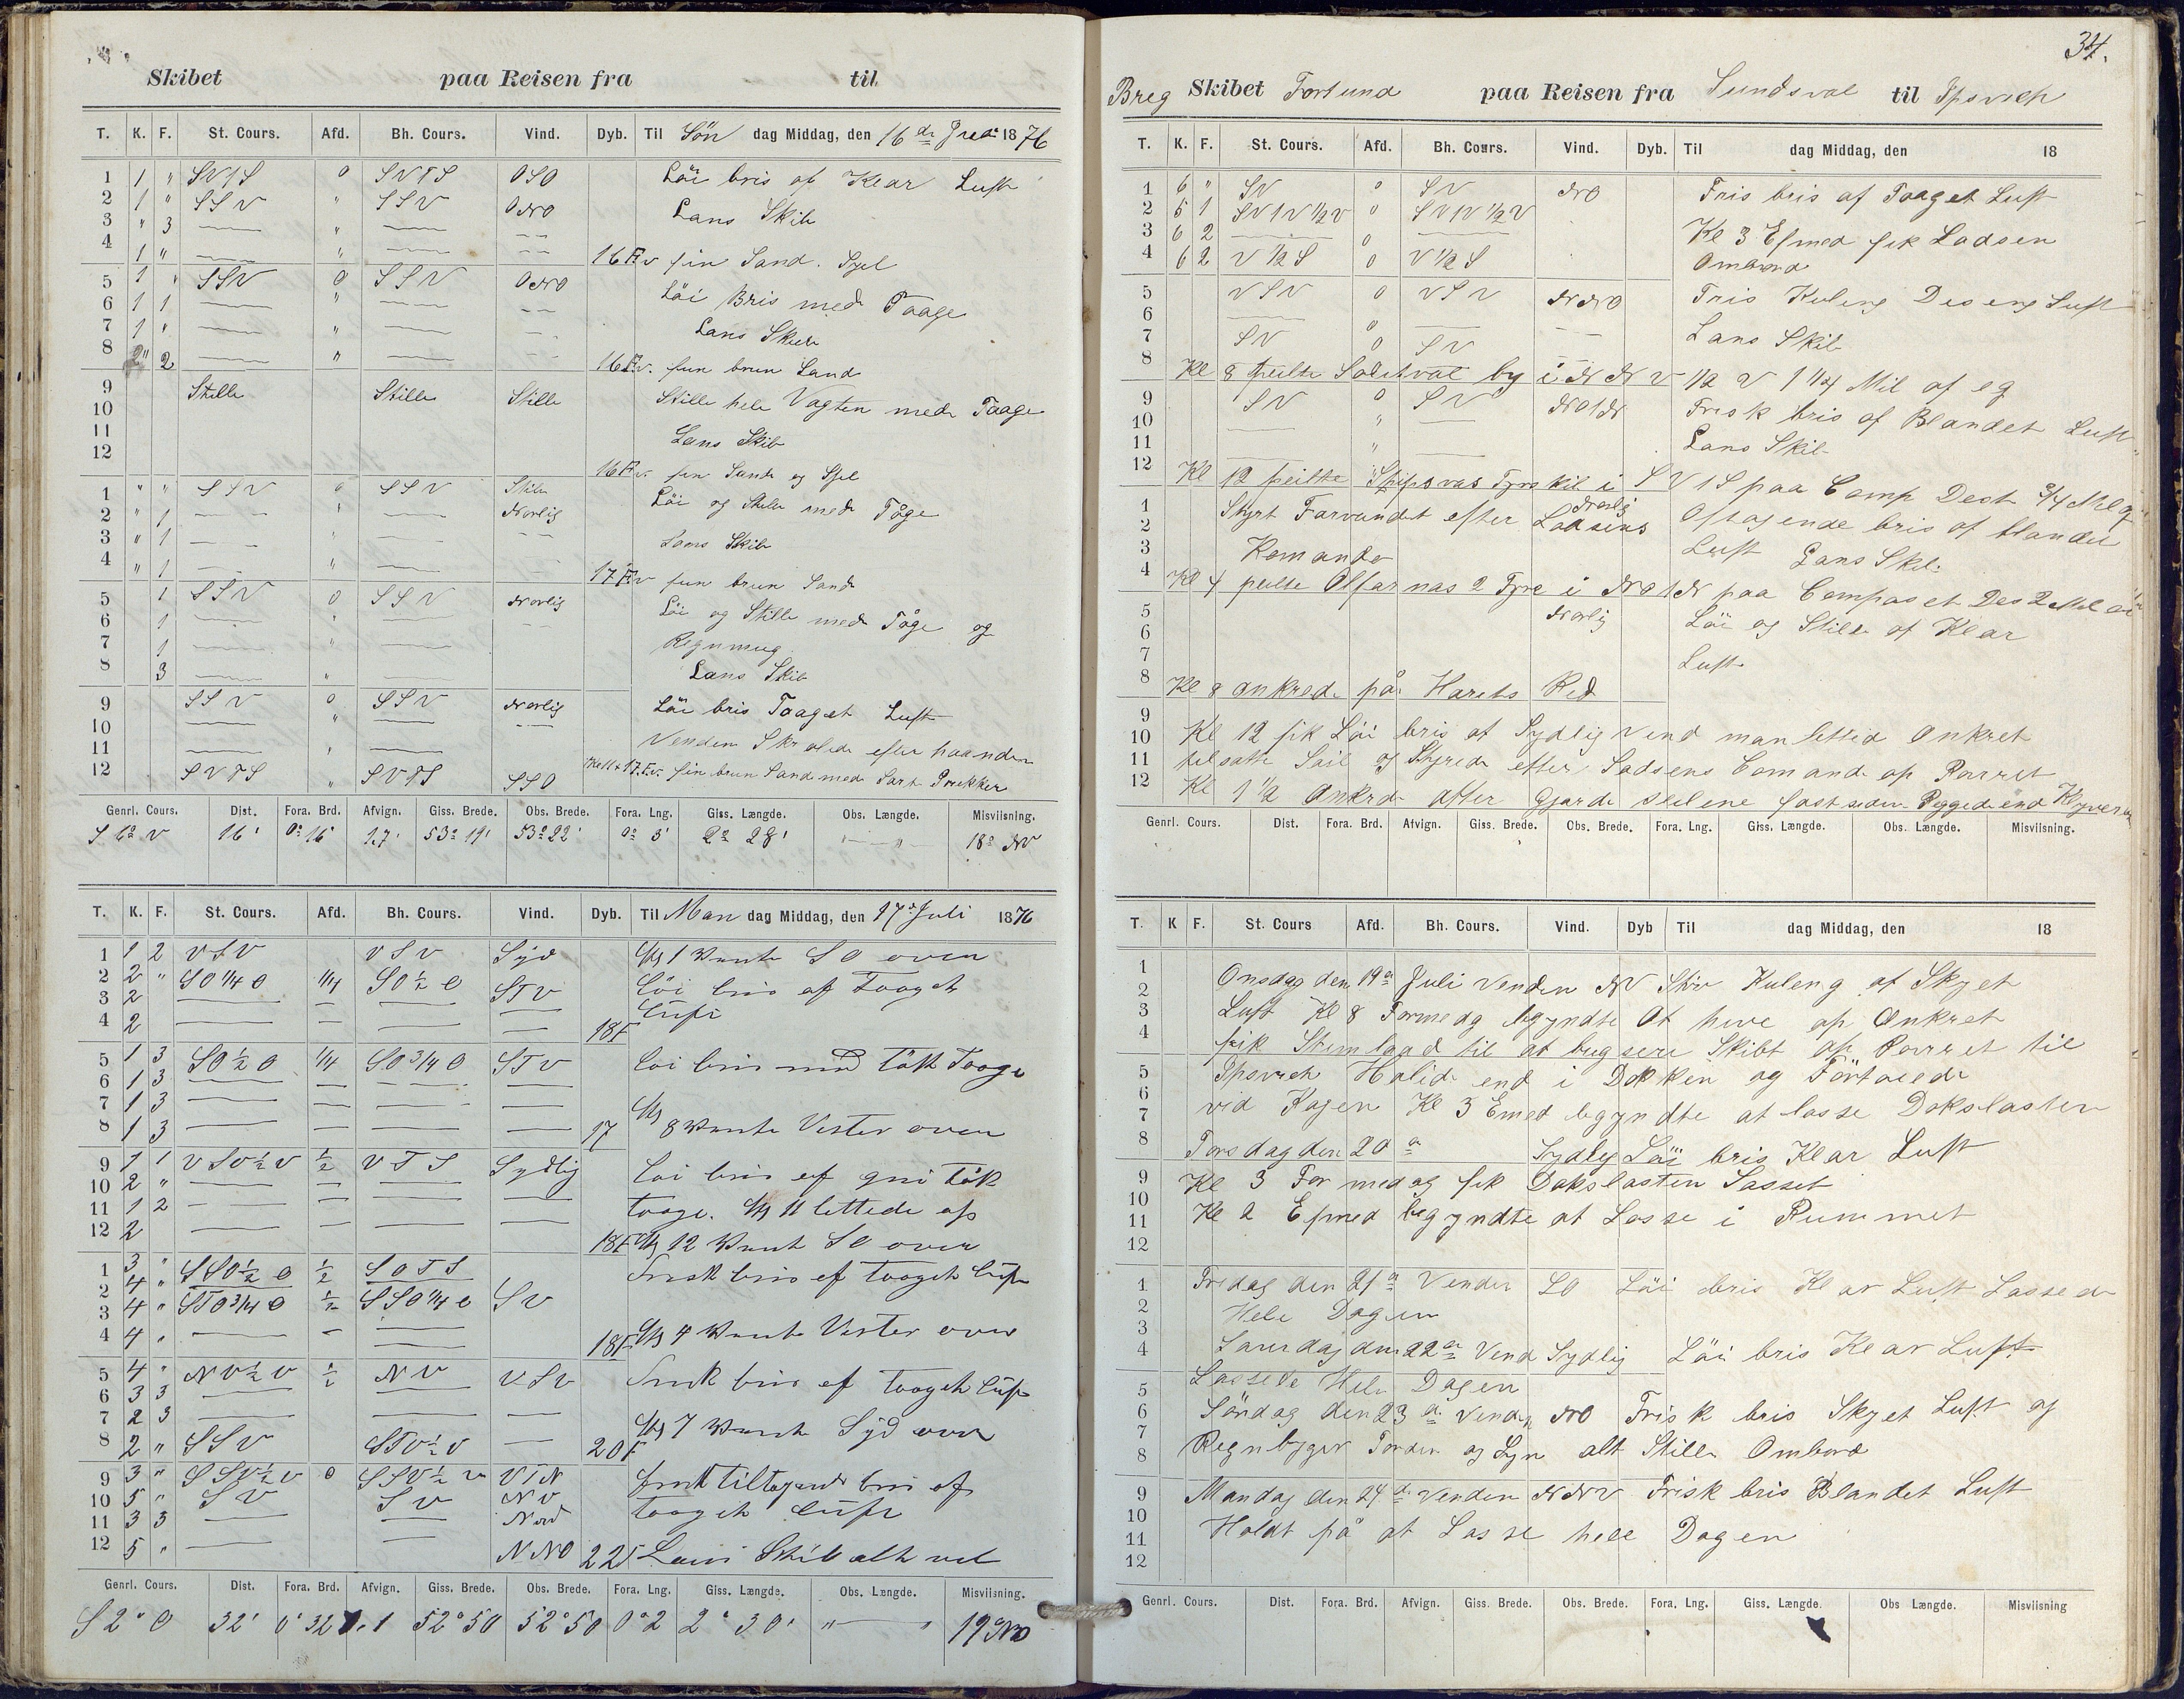 Skibet paa Reisen fra til
T. K. F. St. Cours. Afd. Bh. Cours. Vind. Dyb. Til Sön dag Middag, den 16de 1876
1 1 " SVTS 0 SVTS OSO Löi bris af Klar Luft
2 1 " SSV " SSV ONO Lans Skib
3 " 3 — " — --
4 1 " — " — -- 16 Fv fin Sand. Sjel
5 1 " SSV 0 SSV ONO Löi Bris med Taage
6 1 1 — " — --
7 1 " — " — — Lans Skib
8 2 — " — -- 16 Fv. fun brun Sand
9 Stille Stille Stille Stille hele Vagten med Taage
10
11 Lans Skib
12 16 Fv. fin Sand og Sjel
1 " " SSV " SSV Stille Löi og Stille med Tåge
2 " 1 -- " -- Norlig
3 " 1 -- " — -- Lans Skib
4 " 1 — " — 17 Fv fun brun Sand
5 1 SSV 0 SSV Norlig Löi og Stille med Tåge og
6 1 — " — --
7 1 — " —
8 3 — " — Lans Skib
9 SSV 0 SSV Norlig Löi bris Taaget Luft
10 — " — --
11 — " — Venden Skralede efter haanden
12 SVTS " SVTS SSO 17 Fv. fin brun Sand med Sort Prikker
Genrl. Cours. Dist. Fora. Brd. Afvign. Giss. Brede. Obs. Brede. Fora. Lng. Giss. Længde. Obs. Længde. Misviisning.
16' 0° 16 1.7' 53° 19' 53° 22' 0° 3' 2° 28' "—" 18° NV
T. K. F. St. Cours. Afd. Bh. Cours. Vind. Dyb. Til Man dag Middag, den 17d Juli 1876
1 1 2 VSV VSV Syd Kl 1 Vente SO over
2 2 " SO 1/4 O 1/4 SO 1/2 O STV Löi bris af Taaget
3 2 — — — — Luft
4 2 — — — — 18F
5 1 3 SO 1/2 O 1/4 SO 3/4 O STV Löi bris med tåk Taage
6 1 3 — — — —
7 1 3 — — — —
8 1 3 — — — — 17 Kl 8 Vente Vester over
9 1 1 VSV 1/2 V 1/2 VTS Sydlig Löi bris af tåk
10 2 " — — — —
11 1 2 — — — — taage. Kl 11 lettede op
12 2 — — — — 18F Kl 12 Vent SO over
1 3 " SSO 1/2 O 1/2 SOTS Frisk bris af taaget Luft
2 4 "
3 4 " STO 3/4 O 1/2 SSO 1/4 O SV
4 4 " — — — 18F Kl 4 Vente Vester over
5 4 " NV 1/2 V 1/2 NV VSV Frisk bris af taaget Luft
6 3 3 — —
7 2 3 — — — Kl 7 Vente Syd over
8 2 " SSV STV 1/2 V — 20F
9 3 " SSV 1/2 V 0 SSV 1/2 V VTN Frisk tiltagende bris af
10 5 " SV SV NV taaget Luft
11 3 3 — — Nord
12 5 " — — NNO 22F Lens Skib alt vel
Genrl. Cours. Dist. Fora. Brd. Afvign. Giss. Brede. Obs. Brede. Fora. Lng. Giss. Længde. Obs. Længde. Misviisning.
S 2° O 32' 0° 32 1.1 52° 50 52° 50 0° 2 2° 30' "—"
34.
Breg Skibet Fortuna paa Reisen fra Sundsval til Ipsvich
T. K. F. St. Cours. Afd. Bh. Cours. Vind. Dyb. Til dag Middag, den 18
1 6 " SV 0 SV NO Fris bris af Taaget Luft
2 6 1 SVTV 1/2 V 0 SVTV 1/2 V
3 6 2 — — Kl 3 Efmed fik Lodsen
4 6 2 V 1/2 S 0 V 1/2 S Ombord
5 VSV 0 VSV NNO Fris Kuling Deseng Luft
6 — —
7 SV 0 SV — Lans Skib
8 Kl 8 peilte by i NNV 1/2 V 1 1/4 Mil af eg
9 SV 0 SV NOTN Frisk bris af Blandet Luft
10 — " —
11 — " — Lans Skib
12 Kl 12 peilte Skib i SVTS paa Comp Dest 3/4 Mil
1 Styrt Farvandet efter Lodsens Norlig Oftagende bris af blandet
2
3 Komando Luft Lans Skib
4 Kl 4 peilte 2 Fyre i NOTN paa Compaset Des 2 Mil
5 Norlig Löi og Stille af Klar
6
7 Luft
8 Kl 8 ankrede på Harets Red
9 Kl 12 fik Löi bris af Sydlig vend man lettede Ankret
10
11 tilsatte Seil og Styrede efter Lodsens Comando op Rarret
12 Kl 1 1/2 Ankrde after Gjorde Seilene fast siden
Genrl. Cours. Dist. Fora. Brd. Afvign. Giss. Brede. Obs. Brede. Fora. Lng. Giss. Længde. Obs. Længde. Misviisning.
T. K F. St. Cours Afd. Bh. Cours. Vind. Dyb Til dag Middag, den 18
1 Onsdag den 19de Juli Venden NV Stiv Kuleng af Skyet
2
3 Luft Kl 8 Formedag begyndte At hive op Ankret
4 fik Stembaad til at bugsere Skibt op Rarret til
5 Ipsvich Halide end i Dokken og Förtøiede
6
7 vid Kajen Kl 3 Emed begyndte at losse Dækslasten
8 Torsdag den 20de Sydlig Löi bris Klar Luft
9 Kl 3 For medag fik Dækslasten Losset
10
11 Kl 2 Efmed begyndte at Losse i Rummet
12
1 Fredag den 21de Venden SO Löi bris Klar Luft Lossede
2 Hele Dagen
3
4 Lørerdag den 22de Vend Sydlig Löi bris Klar Luft
5 Lossede Hele Dagen
6 Söndag den 23de Venden NO Frisk bris Skyet Luft og
7
8 Regnbyger Torden og Lyn alt Stille Ombord
9 Mandag den 24de Venden NNV Frisk bris Blandet Luft
10
11 Holdt på at Losse hele Dagen
12
Genrl. Cours. Dist. Fora. Brd. Afvign. Giss. Brede. Obs. Brede. Fora. Lng. Giss. Længde. Obs Længde. Misviisning